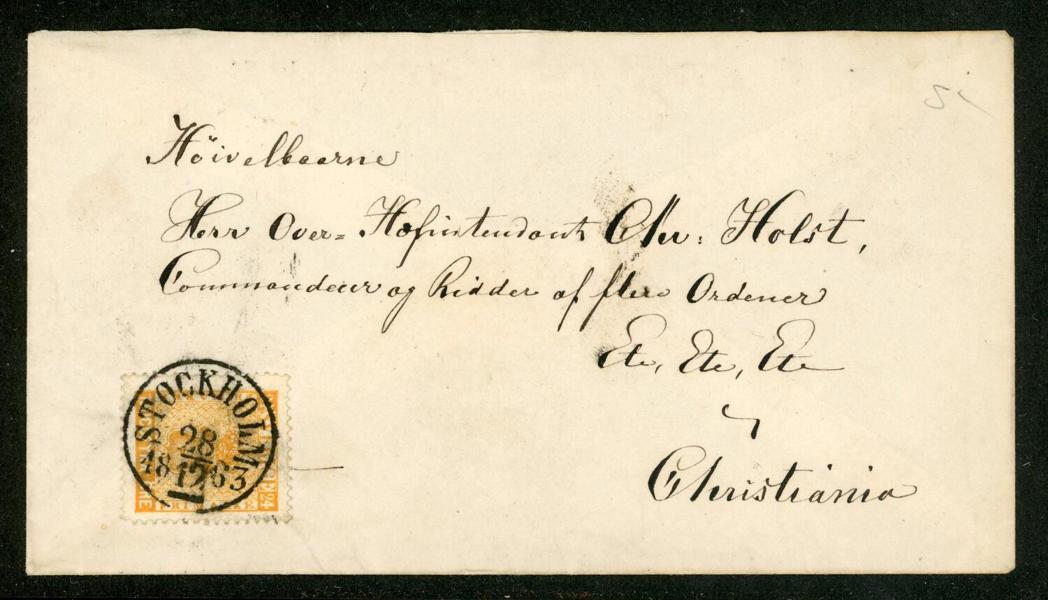 Høivelbaarne
Herr Over= Hofintendant Chr: Holst,
Commandeur og Ridder af flere Ordener
Etc, Etc, Etc
i
Christiania
STOCKHOLM
28
18 12 63
FRIMÄRKE
24